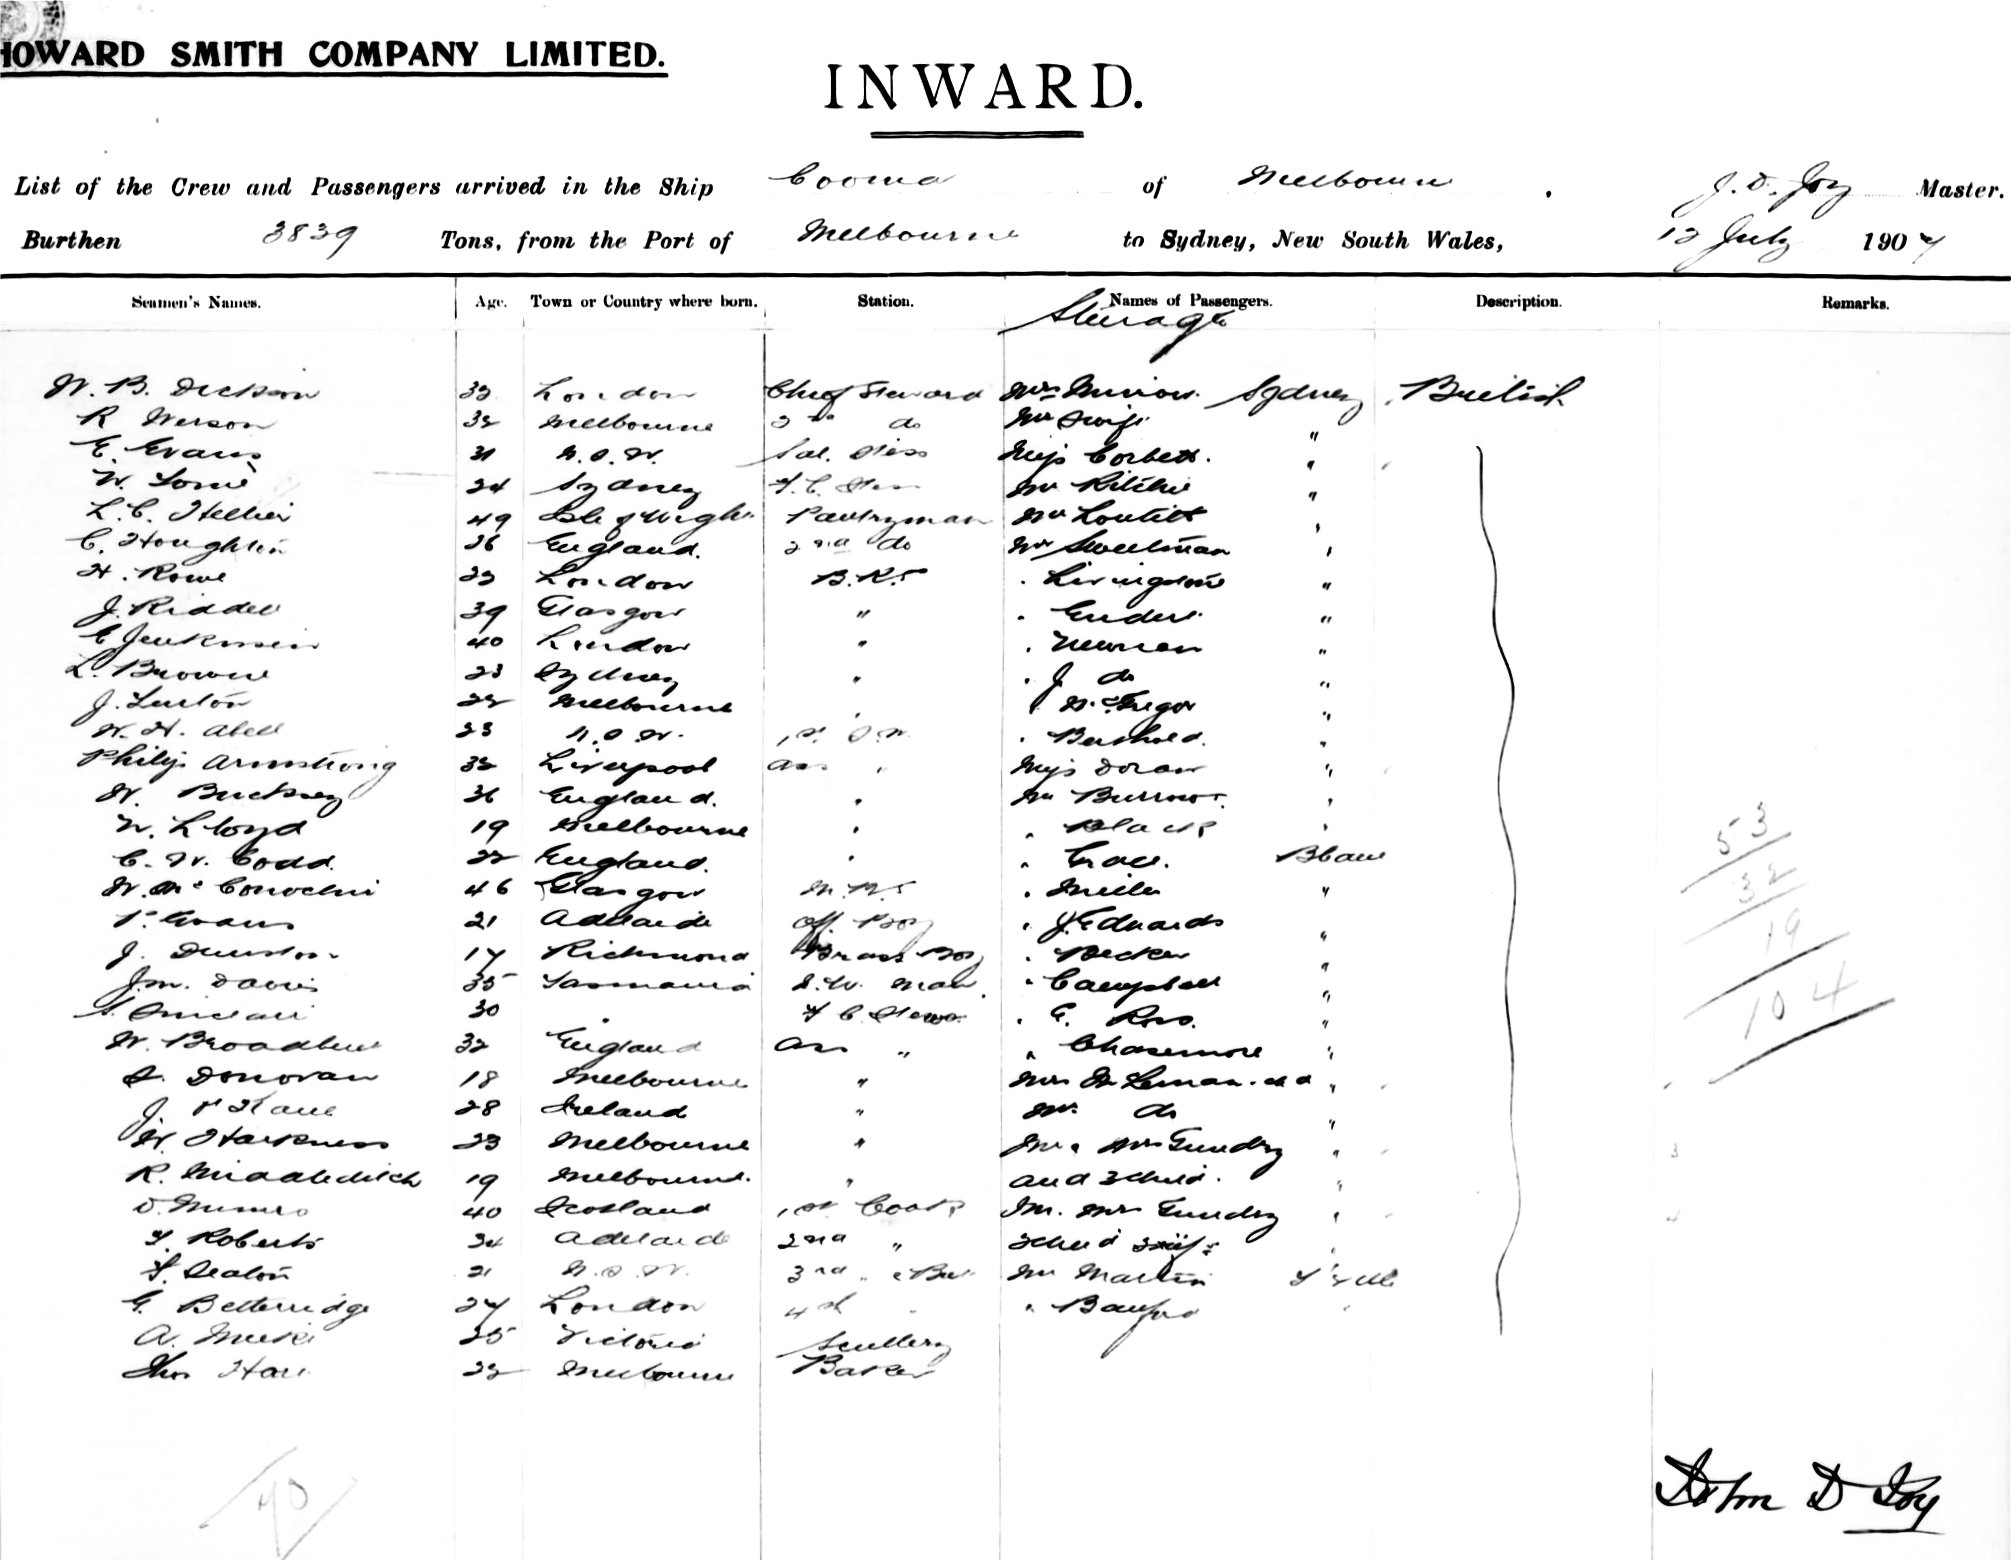 HOWARD SMITH COMPANY LIMITED.
INWARD.
List of the Crew and Passengers arrived in the Ship Cooma of Melbourne, J. D. Joy Master.
Burthen 3839 Tons, from the Port of Melbourne to Sydney, New South Wales, 12 July 1907
Seamen's Names. Age. Town or Country where born. Station. Names of Passengers. Description. Remarks.
Steerage
W. B. Dickson 33 London Chief Steward Mrs Sydney British
R Werson 32 Melbourne 2nd do Mr "
E. Evans 31 N.S.W. Sal. Stess Miss Corbett. "
W. 24 Sydney F.C. Mr Ritchie "
L. C. Hellier 49 Isle of Wight Pantryman Mr Loutitt "
C. Houghton 26 England. 2nd do Mr Sweetman "
H. Rowe 23 London B.R.S " Livingstone "
J. Riddell 39 Glasgow " " "
E Jenkinson 40 London " " Newman "
L. Browne 23 Sydney " " J do "
J. Lurton 22 Melbourne " " McGregor "
W. H. Abell 23 N.S.W. 1st S.W. " Berthold. "
Philip Armstrong 32 Liverpool Ass " Miss Doran "
W. Bucksey 36 England. " Mr Burrows. "
W. Lloyd 19 Melbourne " " Black "
C. W. Codd. 22 England. " " Grace. Bbane
W. McConochie 46 Glasgow M.R.S " Miller "
P. Evans 21 Adelaide Off. Boy " J. Edwards "
J. 17 Richmond Brass Boy " Becker "
J.M. Davis 35 Tasmania S.W. Man. " Campbell "
S. Sinclair 30 " F C Stewss " E. Ross. "
W. Broadbent 32 England Ass " " Chasemore "
D. Donovan 18 Melbourne " Mrs "
J. 28 Ireland " Mr. do "
W. Harkness 23 Melbourne " Mr & Mrs Gundry "
R. Middleditch 19 Melbourne. " and 3 child. " 3
D. Munro 40 Scotland 1st Cook Mr. Mrs Gundry "
F. Roberts 34 Adelaide 2nd " "
F. Seaton 21 N.S.W. 3rd " Mr Martin T'ville
G. Betteridge 27 London 4th " " "
A. 25 Victoria Scullery
Thos Hare 22 Melbourne Baker
53
32
19
104
40
John D Joy